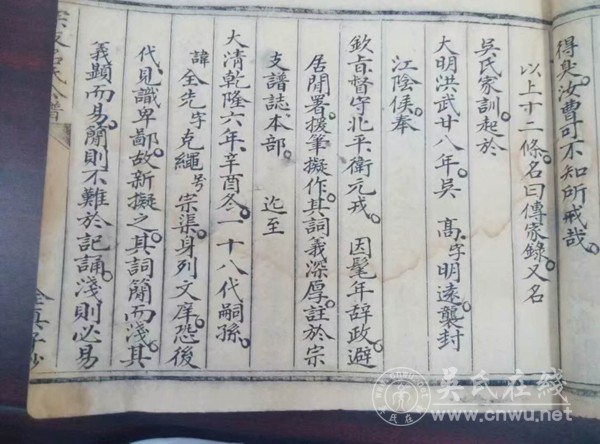 得臭汝曹可不知所戒哉。
以上十二條。名曰傳家錄。又名
吳氏家訓起於
大明洪武廿八年。吳 高。字明遠。襲封
江陰侯奉
欽㫖督守北平。衛元戎。 因髦年辞政避
居閒署。援筆擬作。其詞義深厚。註於宗
支譜誌。本部。 迄至
大清乾隆六年。辛酉冬。一十八代嗣孫。
諱全先字克繩号宗渠。身列文庠。恐後
代見識卑鄙。故新擬之。其詞簡而淺。其
義顯而易。簡則不難於記誦。淺則必易
吳氏在线
www.cnwu.net